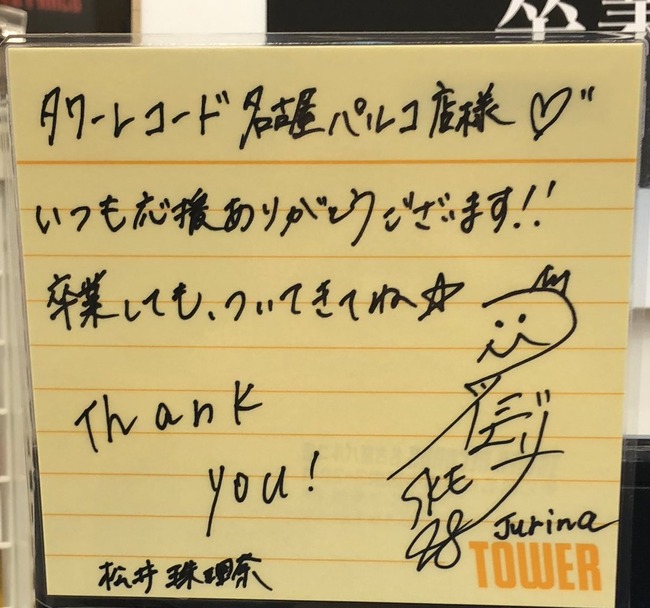 卒業
タワーレコード 名古屋パルコ店様♡"
いつも応援ありがとうございます!!
卒業しても、ついてきてね☆
Thank
you!
SKE
48
Jurina
TOWER
松井珠理奈